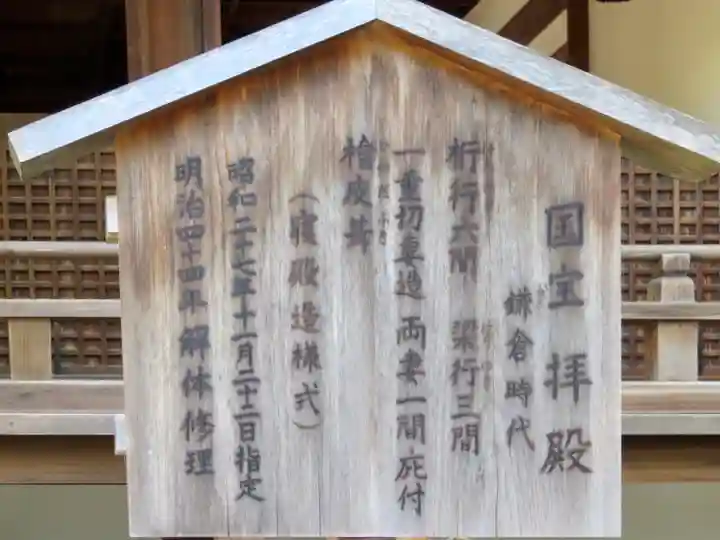 国宝 拝殿
鎌倉時代
桁行六間 梁行三間
一重切妻造 両妻一間庇付
檜皮葺
（寝殿造様式）
昭和二十七年十一月二十二日指定
明治四十四年解体修理